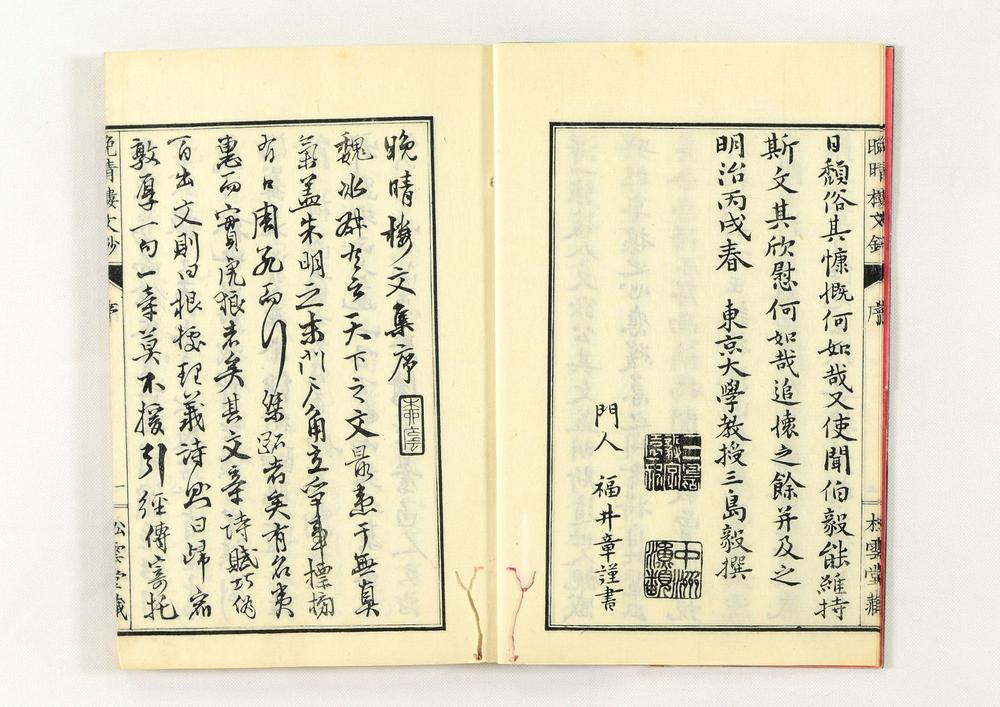 日頽俗其慷慨何如哉又使聞伯毅能維持
斯文其欣慰何如哉追懷之餘并及之
明治丙戌春 東京大學教授三島毅撰
門人 福井章謹書
晩晴樓文鈔 序 松雲堂藏
晚晴樓文集序
魏冰叔有言天下之文最患于無真
氣蓋朱明之末門戶角立爭事標榜
有口周孔而行桀跖者矣有名夷
惠而實虎狼者矣其文章詩賦巧偽
百出文則曰根據理義詩則曰歸宿
敦厚一句一章莫不援引經傳寄托
晩晴樓文鈔 序 一 松雲堂藏